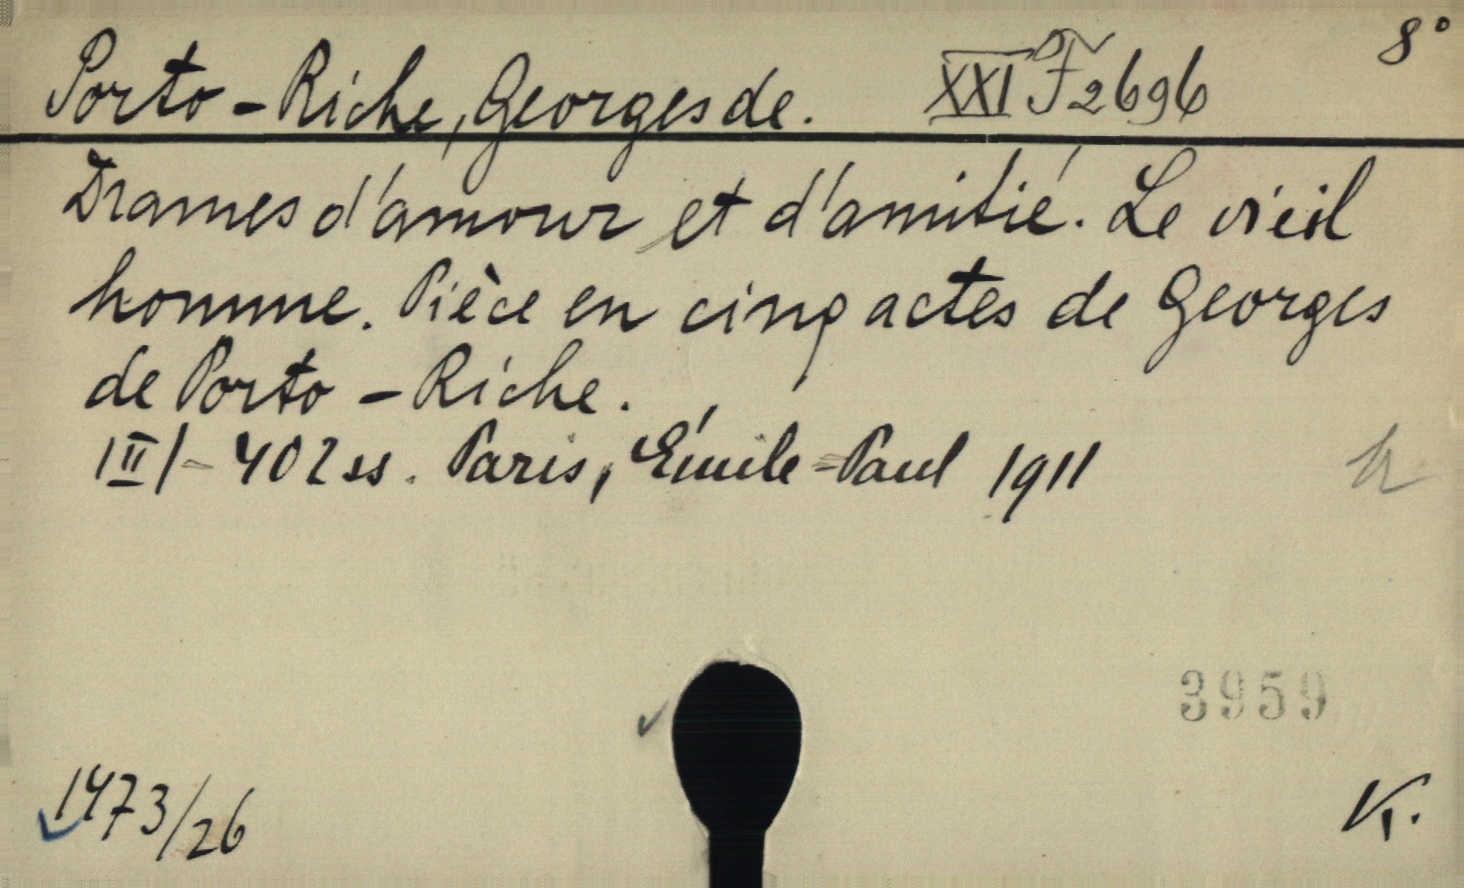 8°
Porto-Riche, Georges de. XXI F 2696
Drames d'amour et d'amitié. Le vieil
homme. Pièce en cinq actes de Georges
de Porto-Riche.
1 II 1-402 ss. Paris, Émile-Paul 1911
3959
1473/26
K.